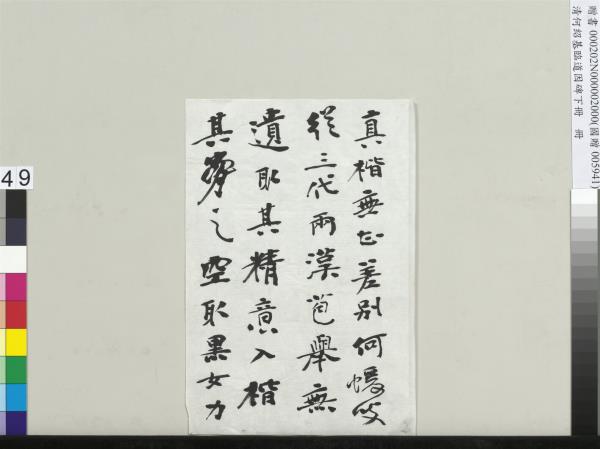 真楷無甚差別何嘗
從三代兩漢苞舉無
遺取其精意入楷
其＿之空取黑女力
贈書 000202N000002000(國贈 005941)
清何紹基臨道因碑下冊 冊
49